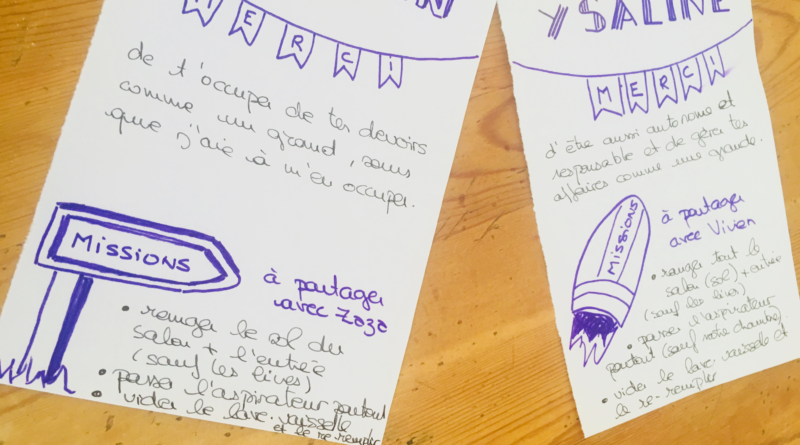 MERCI
de t'occuper de tes devoirs
comme un grand, sans
que j'aie à m'en occuper.
MISSIONS
à partager
avec Zozo
• ranger le sol du
salon + l'entrée
(sauf les livres)
• passer l'aspirateur partout
• vider le lave-vaisselle
et le re-remplir
YSALINE
MERCI
d'être aussi autonome et
responsable et de gérer tes
affaires comme une grande.
MISSIONS
à partager
avec Vivien
• ranger tout le
salon (sol) + entrée
(sauf les livres)
• passer l'aspirateur
partout (sauf votre chambre)
• vider le lave-vaisselle et
le re-remplir